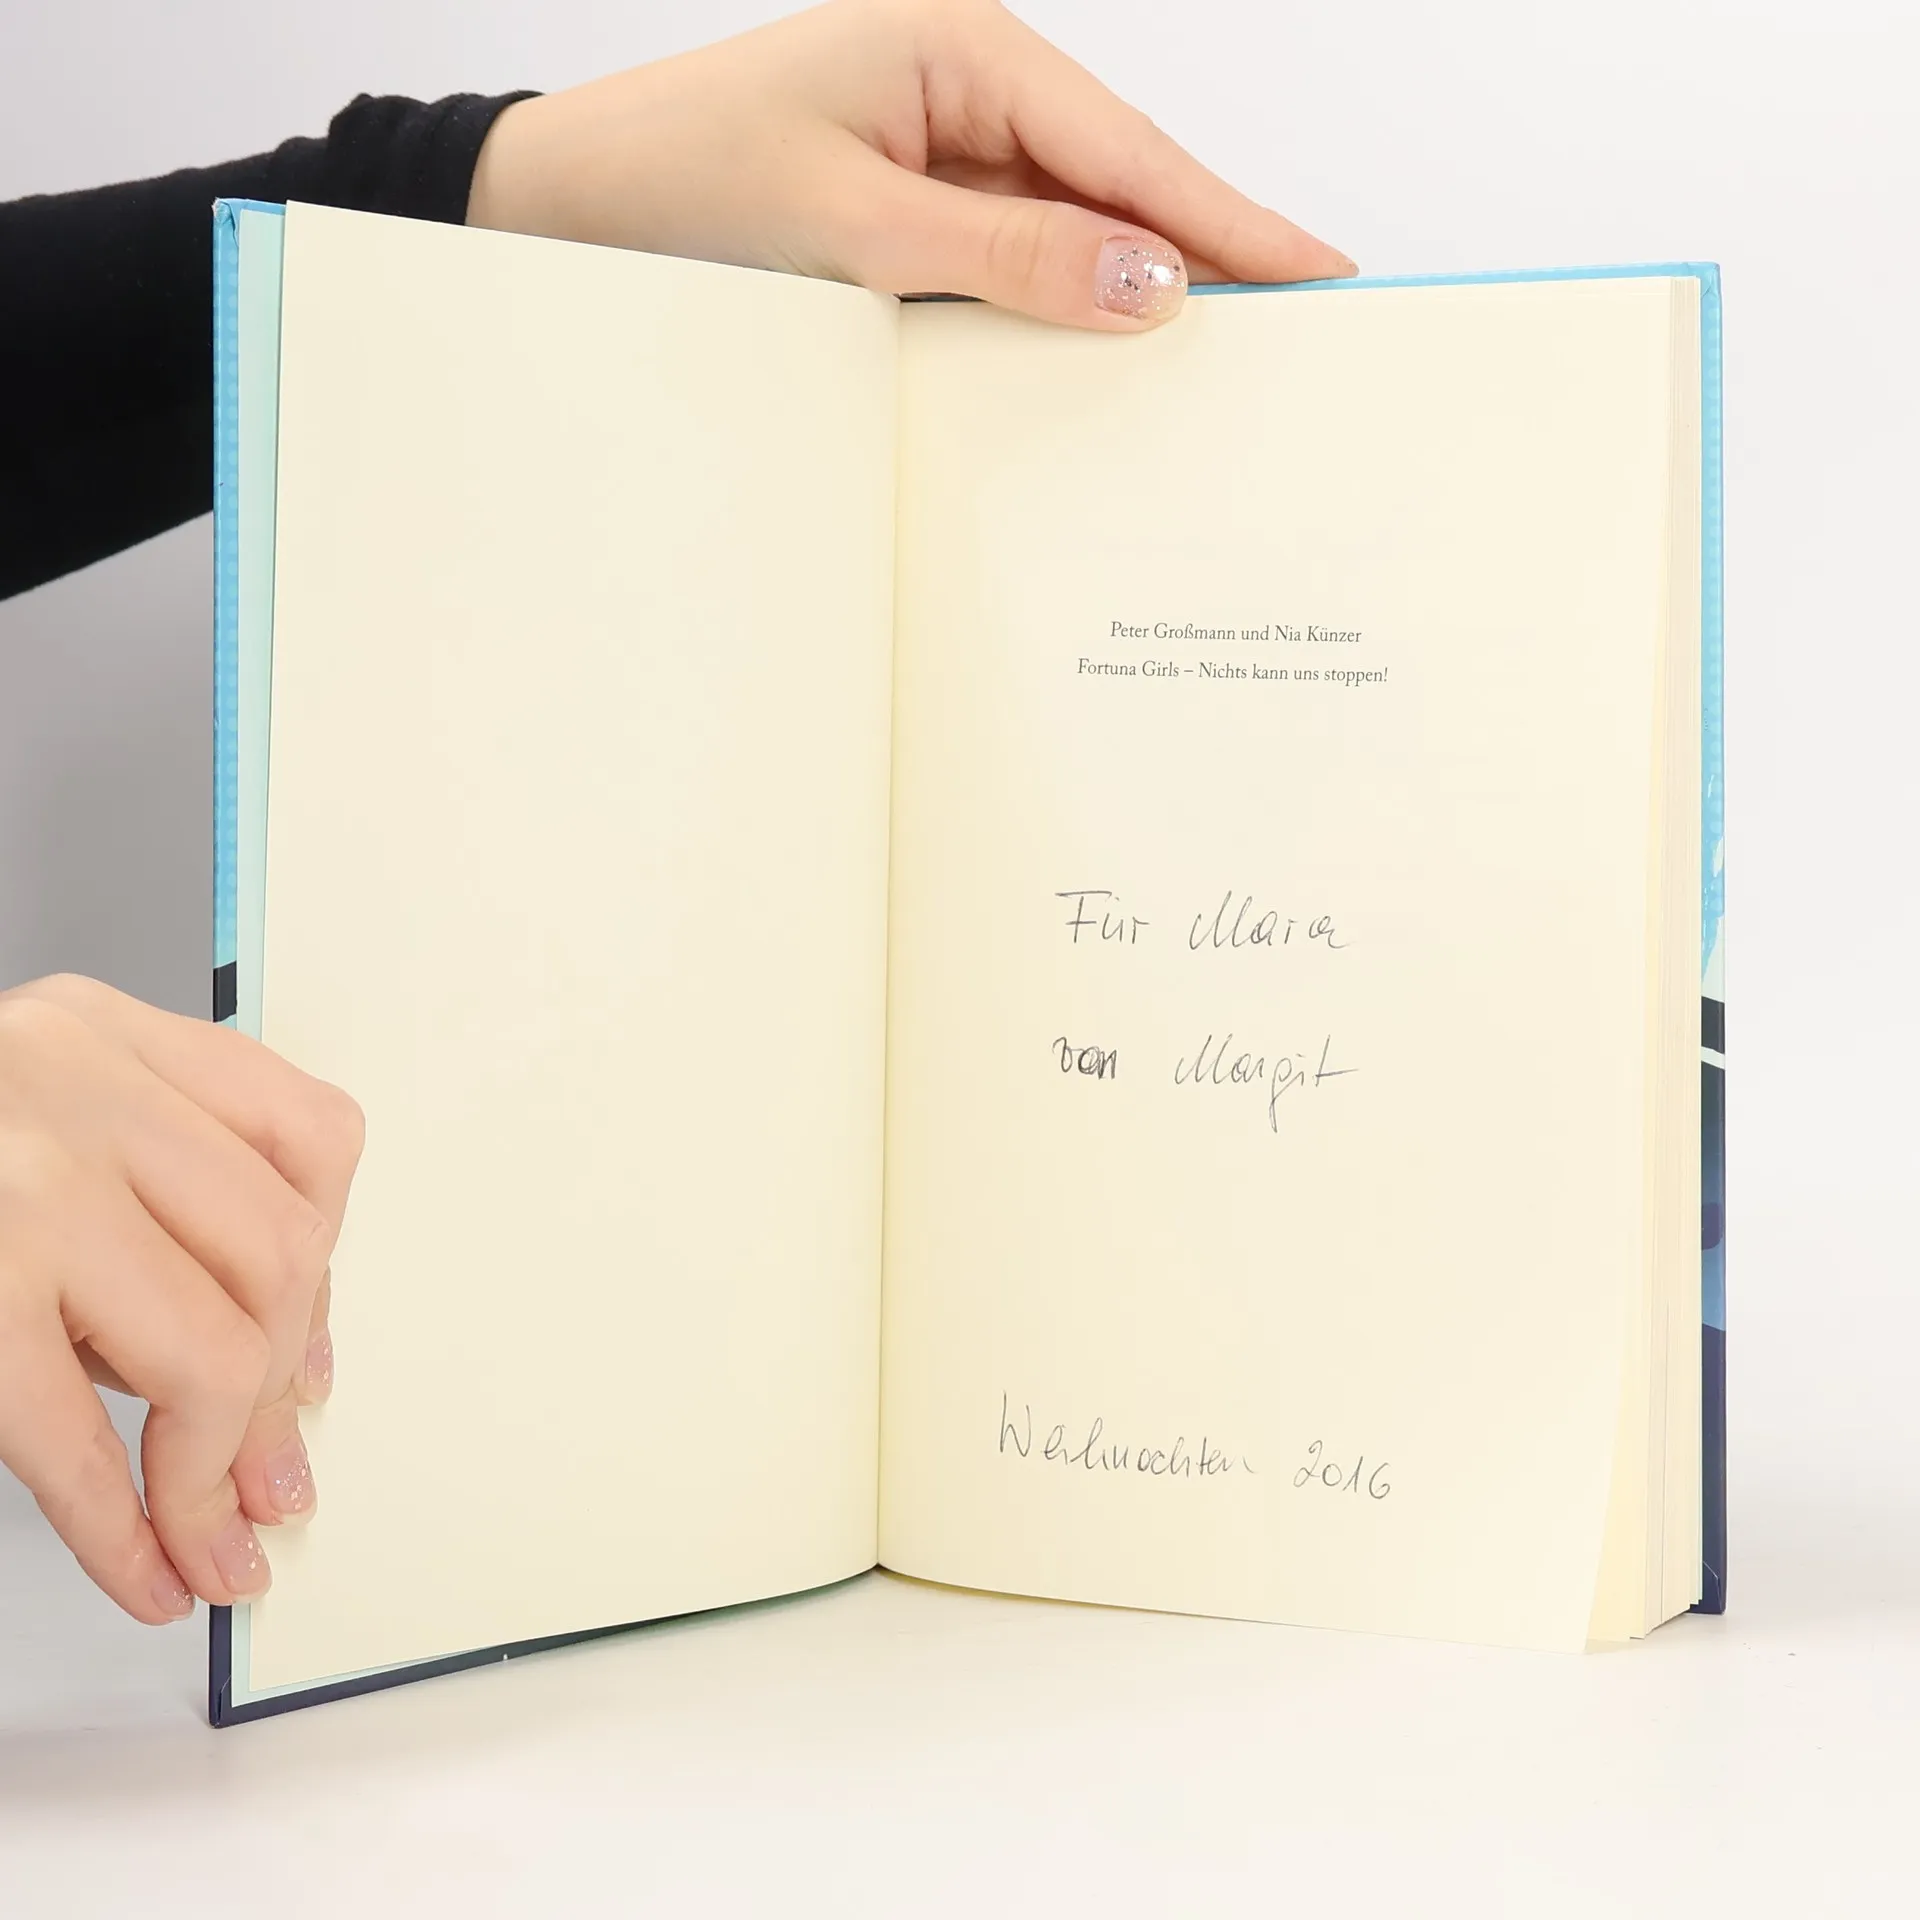 Peter Großmann und Nia Künzer
Fortuna Girls – Nichts kann uns stoppen!
Für Mara
von Margit
Weihnachten 2016